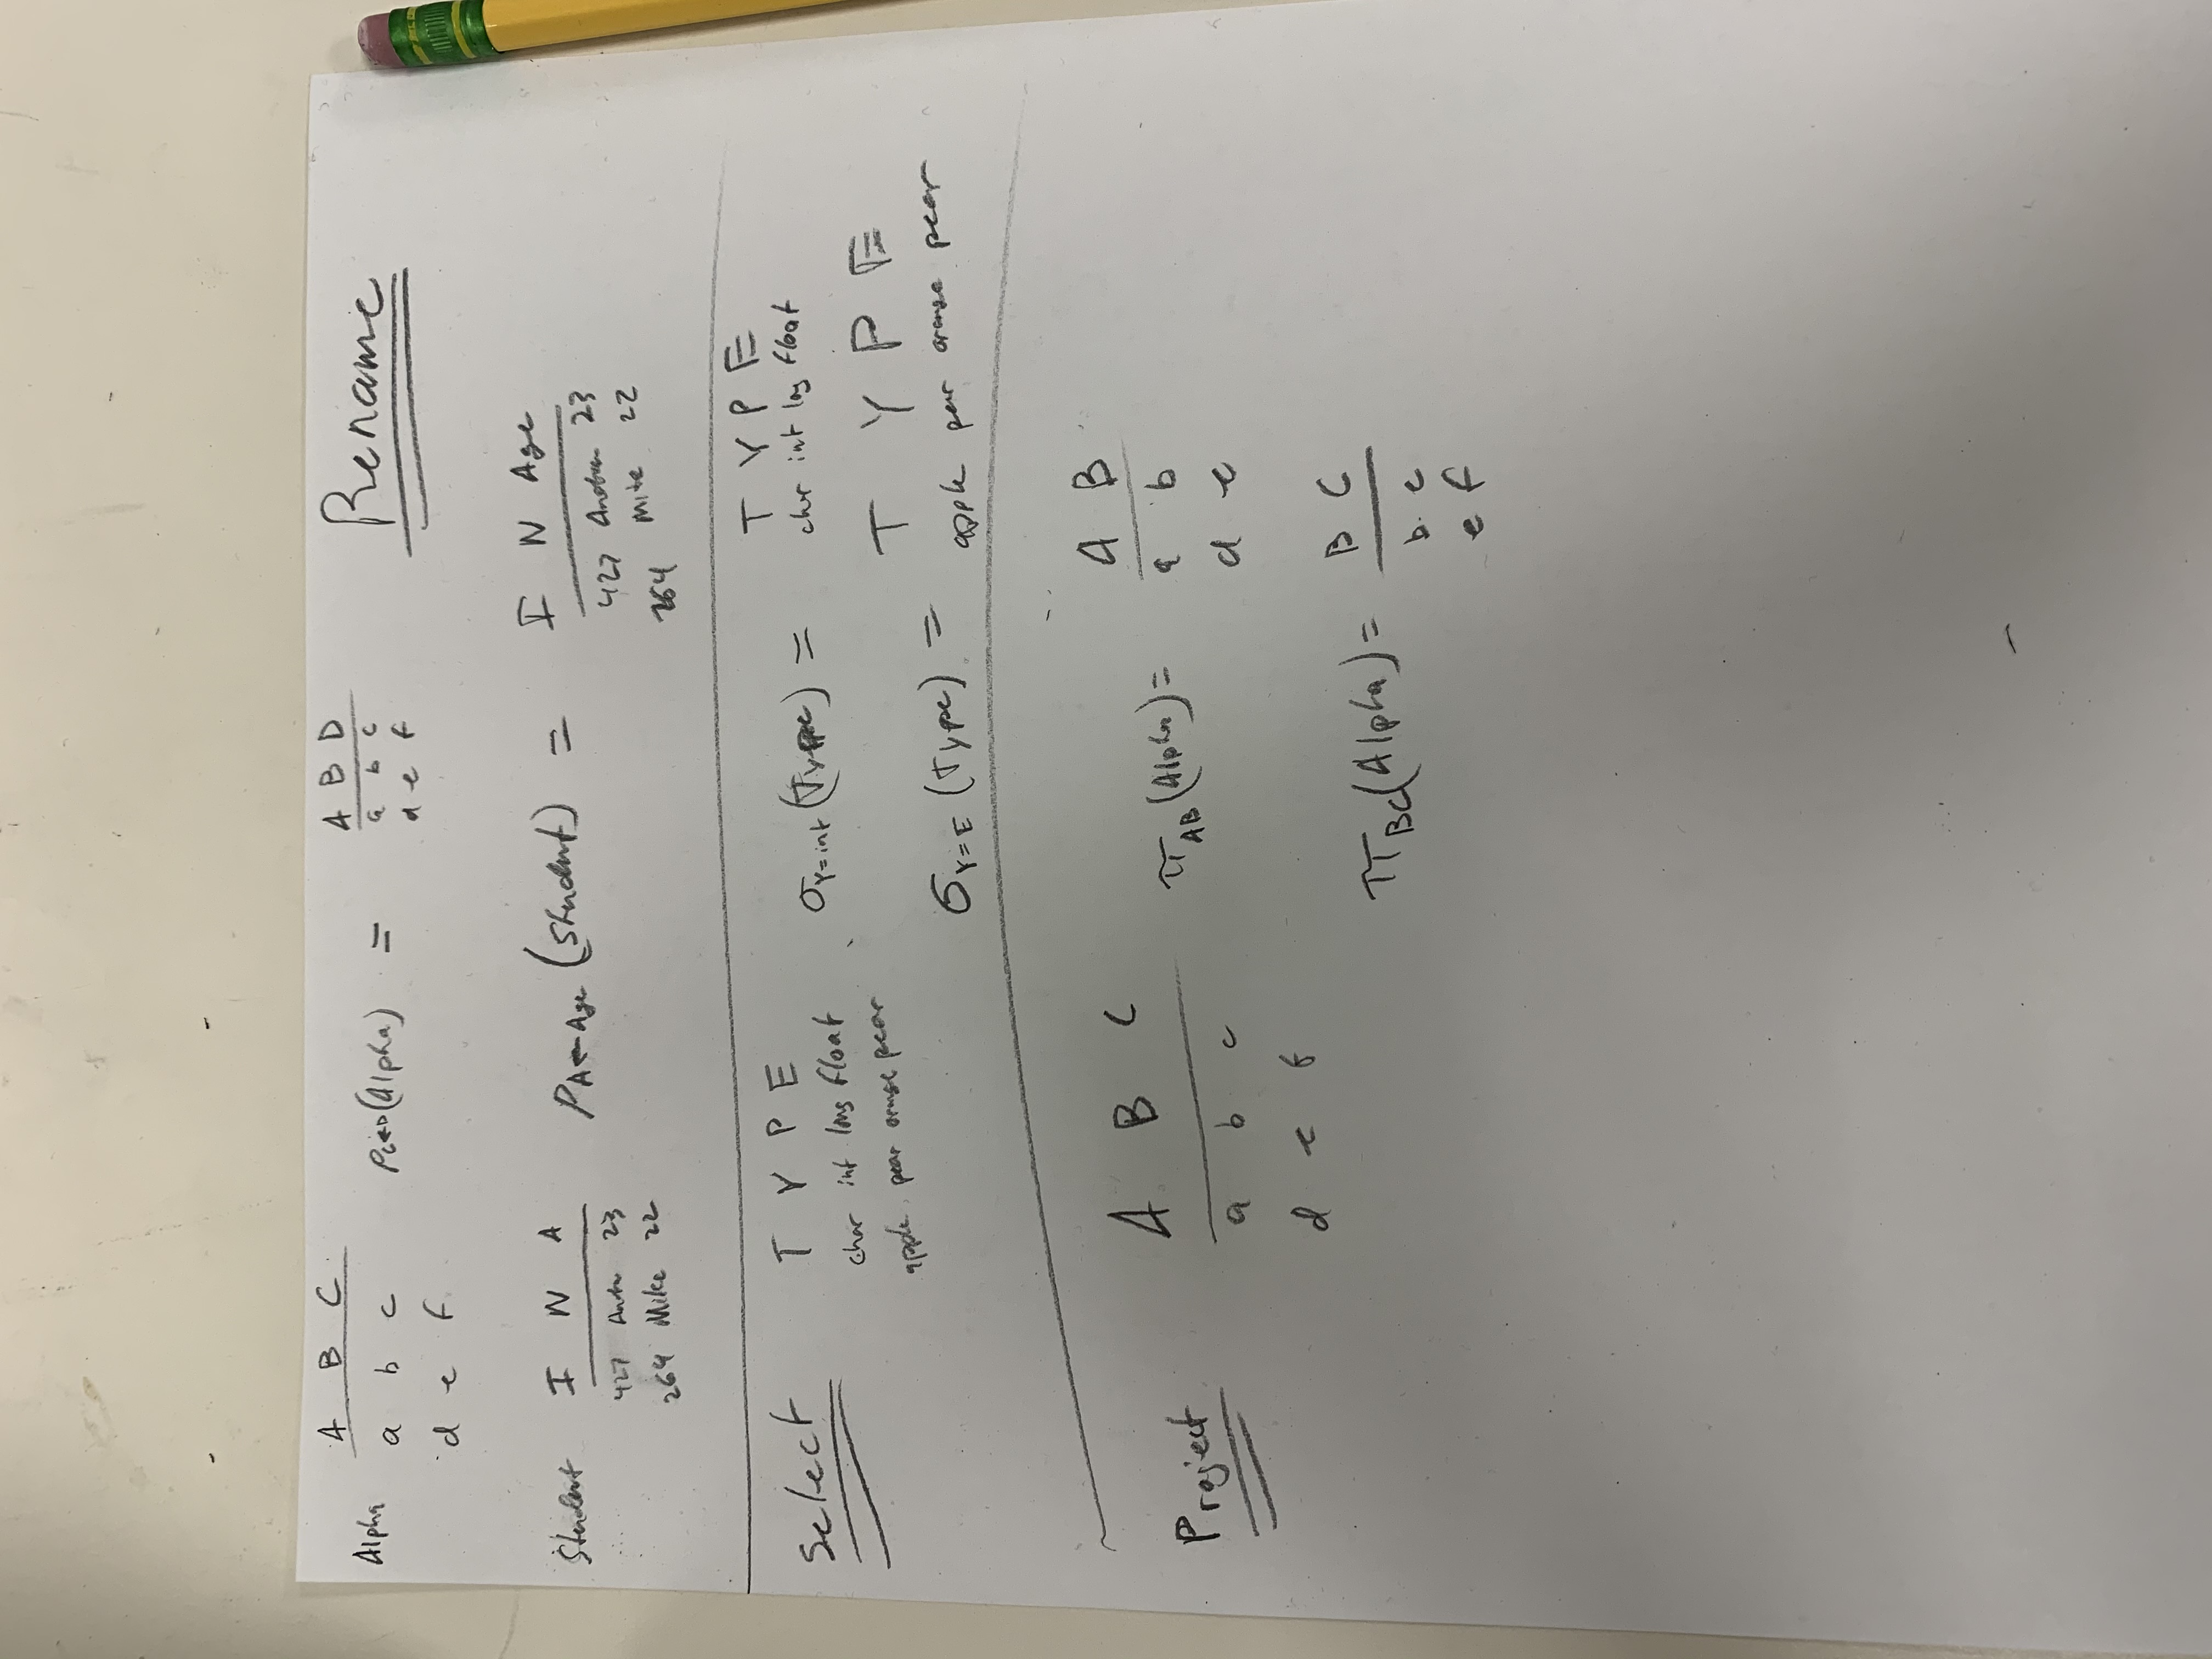 A B C
Alpha a b c ρC←D(Alpha) =
d e f
A B D
a b c
d e f
Rename
Student I N A
427 23
264 Mike 22
ρA←Age (Student) =
I N Age
427 23
264 Mike 22
Select
T Y P E
char int long float
apple pear orange pear
σY=int (Type) =
T Y P E
char int long float
σY=E (Type) =
T Y P E
apple pear orange pear
Project
A B C
a b c
d e f
πAB(Alpha) =
A B
a b
d e
πBC(Alpha) =
B C
b c
e f